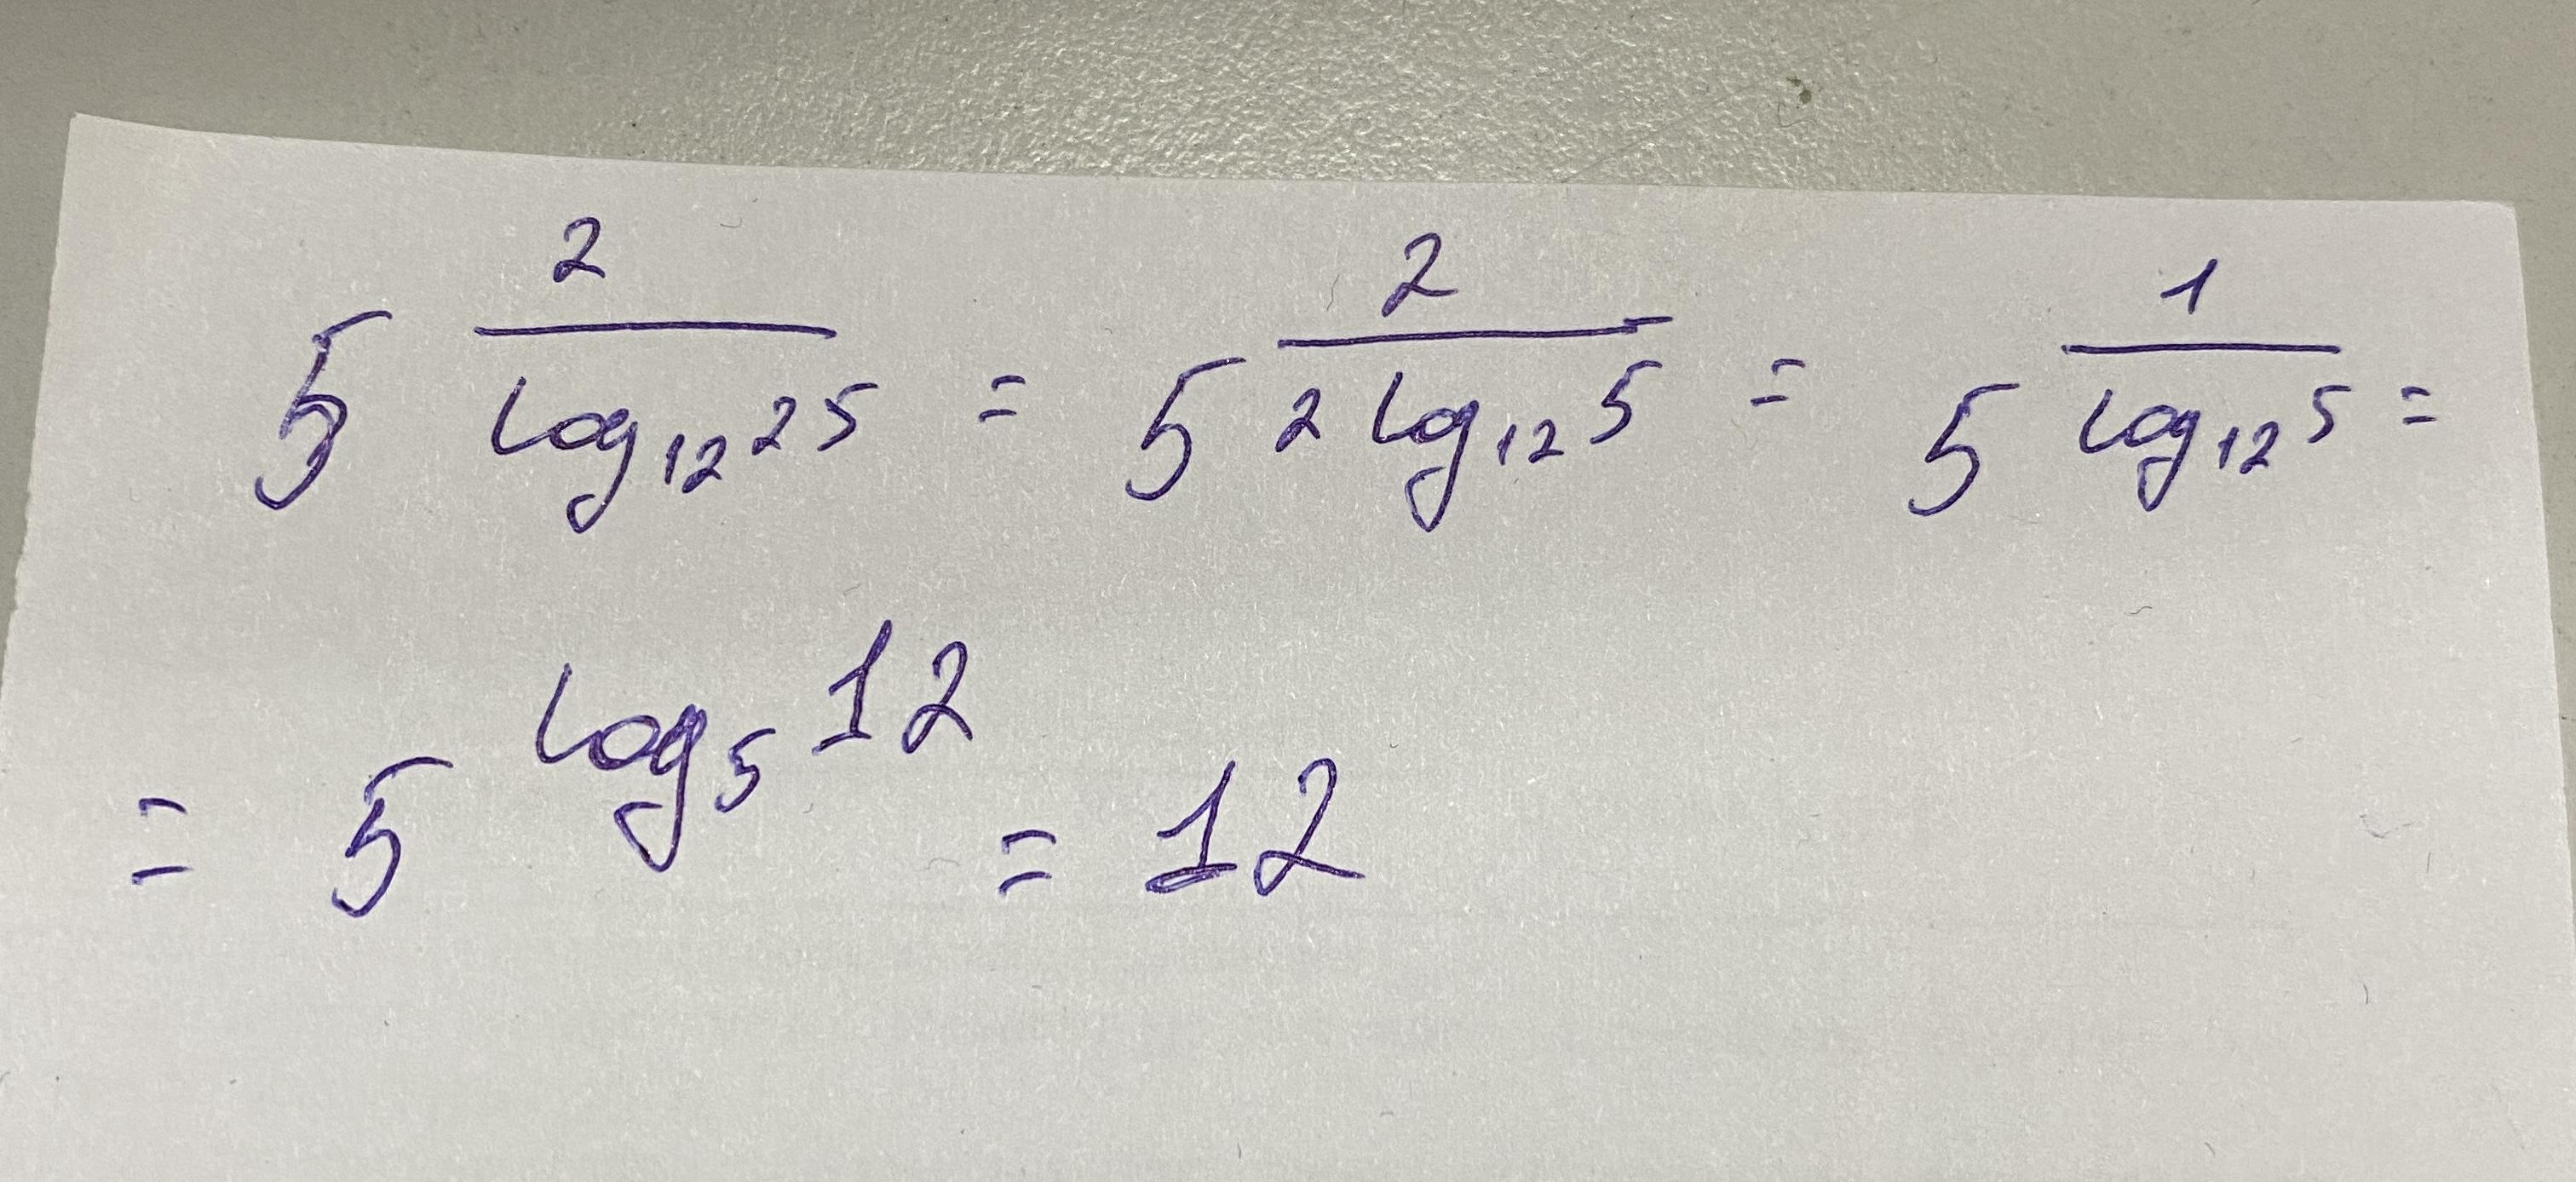 5^(2/(log₁₂25)) = 5^(2/(2log₁₂5)) = 5^(1/(log₁₂5)) =
= 5^(log₅12) = 12